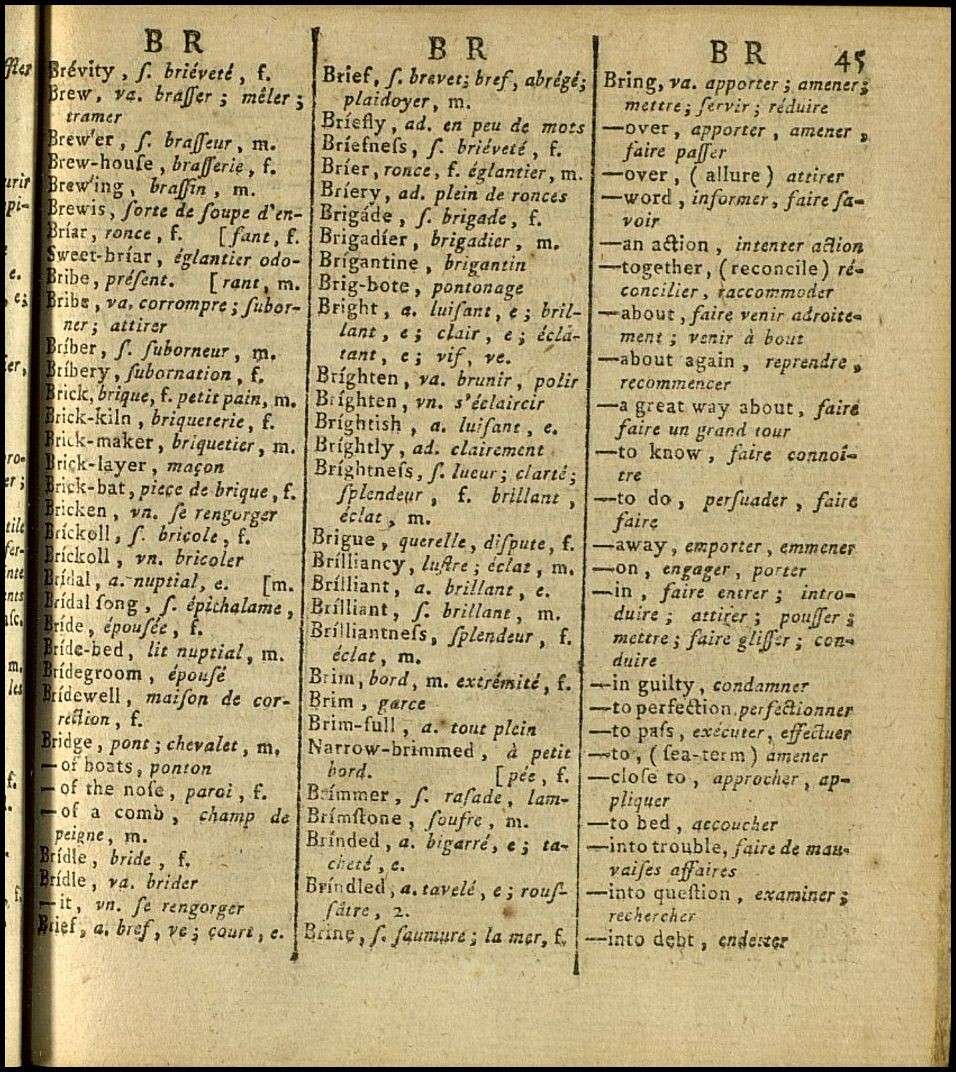 B R
Brévity, ſ. briéveté, f.
Brew, va. braſſer; mêler;
tramer
Brew'er, ſ. braſſeur, m.
Brew-houſe, braſſerie, f.
Brew'ing, braſſin, m.
Brewis, ſorte de ſoupe d'en-
Bríar, ronce, f. [fant, f.
Sweet-bríar, églantier odo-
Bribe, préſent. [rant, m.
Bribe, va. corrompre; ſubor-
ner; attirer
Bríber, ſ. ſuborneur, m.
Bríbery, ſubornation, f.
Brick, brique, f. petit pain, m.
Brick-kiln, briqueterie, f.
Brick-maker, briquetier, m.
Brick-layer, maçon
Brick-bat, piece de brique, f.
Bricken, vn. ſe rengorger
Bríckoll, ſ. bricole, f.
Bríckoll, vn. bricoler
Brídal, a. nuptial, e. [m.
Brídal ſong, ſ. épithalame,
Bríde, épouſée, f.
Bríde-bed, lit nuptial, m.
Brídegroom, épouſé
Brídewell, maiſon de cor-
rection, f.
Bridge, pont; chevalet, m,
—of boats, ponton
—of the noſe, paroi, f.
—of a comb, champ de
peigne, m.
Brídle, bride, f.
Brídle, va. brider
—it, vn. ſe rengorger
Brief, a. bref, ve; court, e.
B R
Brief, ſ. brevet; bref, abrégé;
plaidoyer, m.
Bríefly, ad. en peu de mots
Briefneſs, ſ. briéveté, f.
Bríer, ronce, f. églantier, m.
Bríery, ad. plein de ronces
Brigáde, ſ. brigade, f.
Brigadíer, brigadier, m.
Brígantine, brigantin
Brig-bote, pontonage
Bright, a. luiſant, e; bril-
lant, e; clair, e; écla-
tant, e; vif, ve.
Bríghten, va. brunir, polir
Bríghten, vn. s'éclaircir
Brightish, a. luiſant, e.
Bríghtly, ad. clairement
Bríghtneſs, ſ. lueur; clarté;
ſplendeur, f. brillant,
éclat, m.
Brigue, querelle, diſpute, f.
Brílliancy, luſtre; éclat, m.
Brílliant, a. brillant, e.
Brílliant, ſ. brillant, m.
Brílliantneſs, ſplendeur, f.
éclat, m.
Brim, bord, m. extrêmité, f.
Brim, garce
Brim-full, a. tout plein
Narrow-brimmed, à petit
bord. [pée, f.
Brímmer, ſ. raſade, lam-
Brímſtone, ſoufre, m.
Brínded, a. bigarré, e; ta-
cheté, e.
Bríndled, a. tavelé, e; rouſ-
ſâtre, 2.
Brine, ſ. ſaumure; la mer, f.
B R 45
Bring, va. apporter; amener;
mettre; ſervir; réduire
—over, apporter, amener,
faire paſſer
—over, (allure) attirer
—word, informer, faire ſa-
voir
—an action, intenter action
—together, (reconcile) ré-
concilier, raccommoder
—about, faire venir adroite-
ment; venir à bout
—about again, reprendre,
recommencer
—a great way about, faire
faire un grand tour
—to know, faire connoî-
tre
—to do, perſuader, faire
faire
—away, emporter, emmener
—on, engager, porter
—in, faire entrer; intro-
duire; attirer; pouſſer;
mettre; faire gliſſer; con-
duire
—in guilty, condamner
—to perfection, perfectionner
—to paſs, exécuter, effectuer
—to, (ſea-term) amener
—cloſe to, approcher, ap-
pliquer
—to bed, accoucher
—into trouble, faire de mau-
vaiſes affaires
—into queſtion, examiner;
rechercher
—into debt, endetter